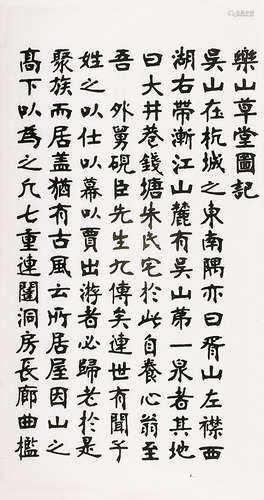 樂山草堂圖記
吳山在杭城之東南隅亦曰胥山左襟西
湖右帶漸江山麓有吳山第一泉者其地
曰大井巷錢塘朱氏宅於此自養心翁至
吾 外舅硯臣先生九傳矣連世有聞子
姓之以仕以幕以賈出游者必歸老於是
聚族而居蓋猶有古風云所居屋因山之
高下以為之凡七重連闥洞房長廊曲檻